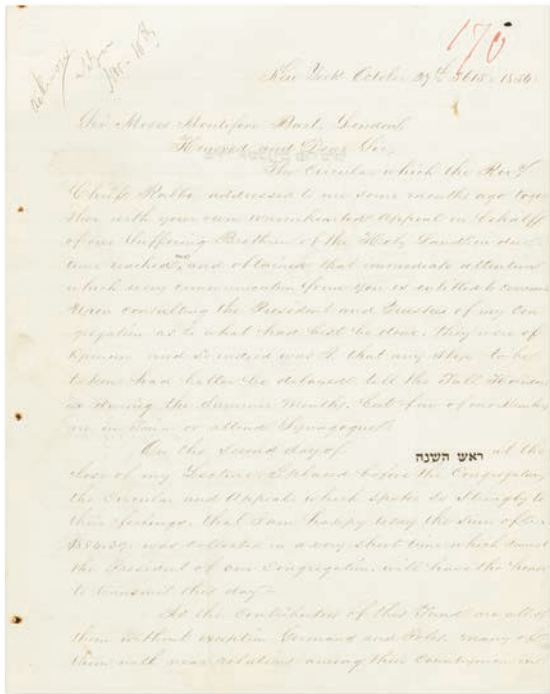 170
New York October 27th 5615 - 1854
Sir Moses Montefiore Bart, London,
Honored and Dear Sir,
The Circular which the Revd
Chief Rabbi addressed to me some months ago toge
ther with your own warmhearted Appeal in behalf
of our Suffering Brethren of the Holy Land in due
time reached me, and obtained that immediate attention
which every communication from you is entitled to
Upon consulting the President and Trustees of my Con
gregation as to what had best be done, they were of
Opinion and so indeed was I that any steps to be
taken had better be delayed till the Fall
as during the Summer Months, but few of our
are in or attend Synagogue.
On the second day of ראש השנה at the
close of my Lecture I before the Congregation
the Circular and Appeal which spoke so strongly to
their feelings, that I am happy to say the Sum of
was collected in a very short time which
the President of our Congregation will have the honor
to transmit this day
As the Contributors of this Fund are all of
them without exception Germans and Poles, many of
them with near relations among their Countrymen in